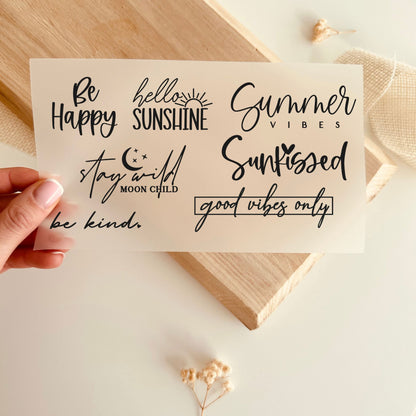 Be
Happy
hello
SUNSHINE
Summer
VIBES
stay wild
MOON CHILD
Sunkissed
be kind.
good vibes only